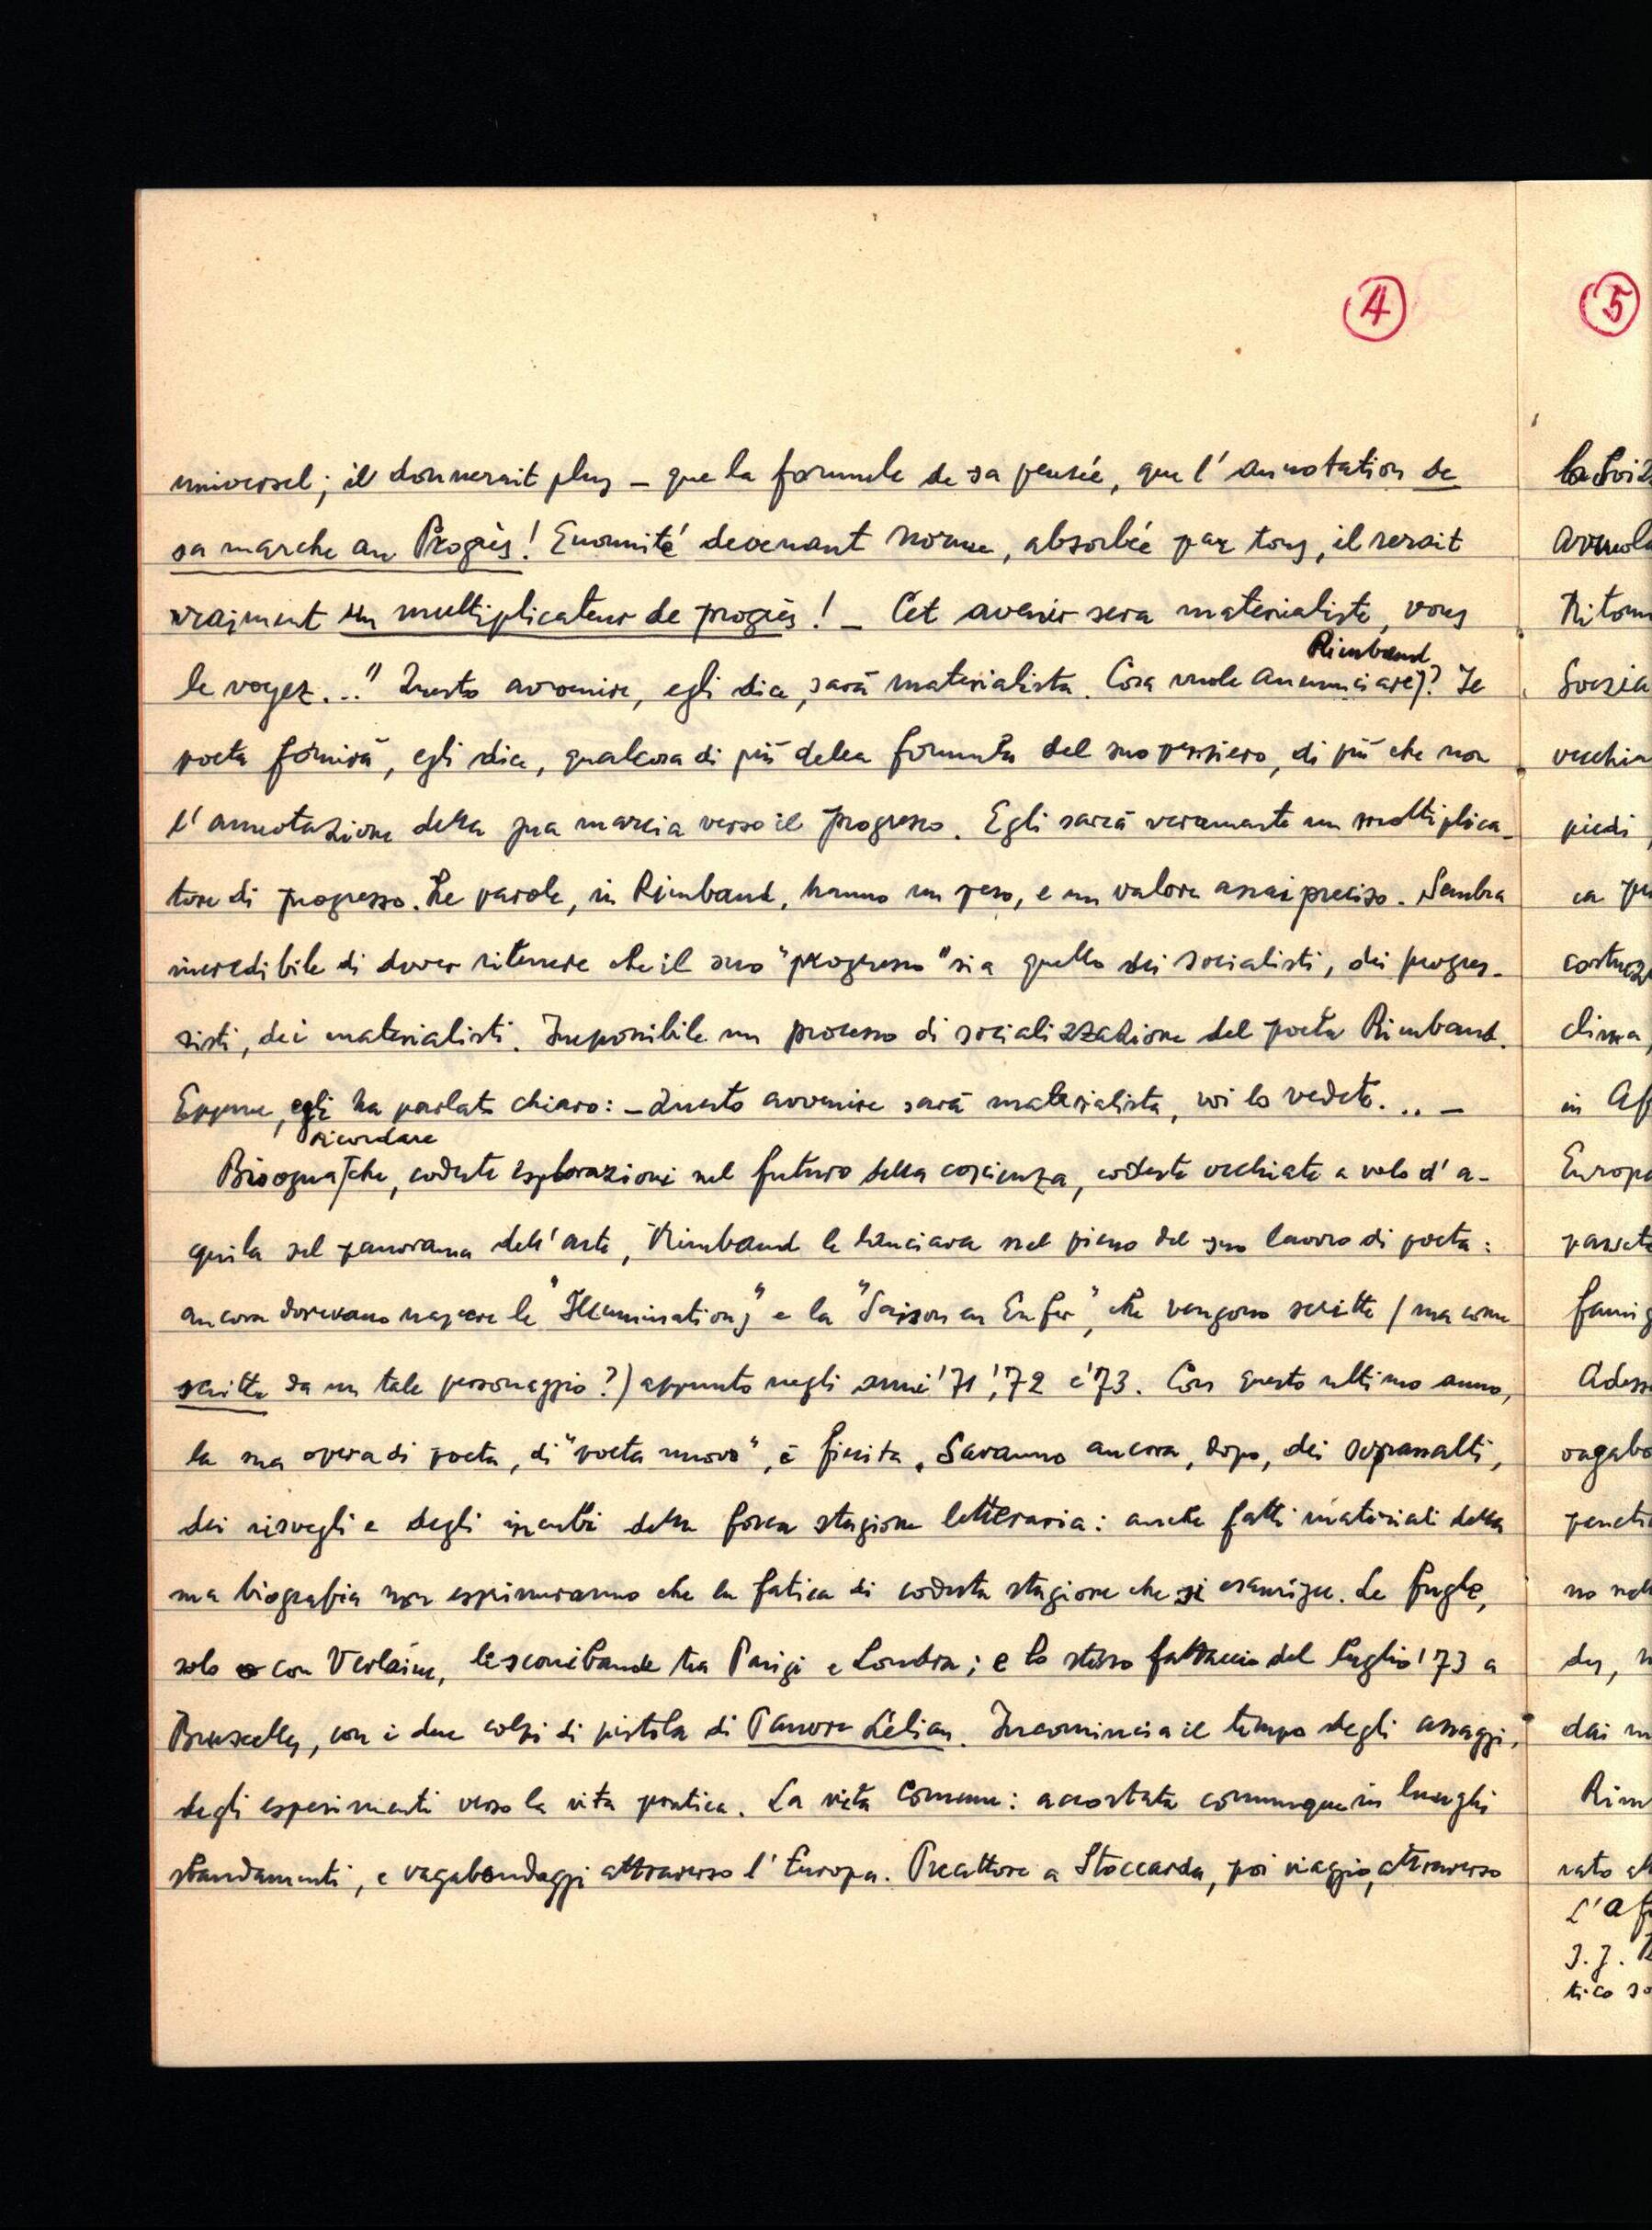 4
universel; il donnerait plus – que la formule de sa pensée, que l'annotation de
sa marche au Progrès! Enormité devenant norme, absorbée par tous, il serait
vraiment un multiplicateur de progrès! – Cet avenir sera materialiste, vous
Rimbaud
le voyez..." Questo avvenire, egli dice, sarà materialista. Cosa vuole annunciare? Il
poeta fornirà, egli dice, qualcosa di più della formula del suo pensiero, di più che non
l'annotazione della sua marcia verso il progresso. Egli sarà veramente un moltiplica-
tore di progresso. Le parole, in Rimbaud, hanno un peso, e un valore assai preciso. Sembra
incredibile di dover ritenere che il suo "progresso" sia quello dei socialisti, dei progres-
sisti, dei materialisti. Impossibile un processo di socializzazione del poeta Rimbaud.
Eppure, egli ha parlato chiaro: – Questo avvenire sarà materialista, voi lo vedete... –
ricordare
Bisogna che, codeste esplorazioni nel futuro della coscienza, codeste occhiate a volo d'a-
quila sul panorama dell'arte, Rimbaud le lanciava nel pieno del suo lavoro di poeta:
ancora dovevano nascere le "Illuminations" e la "Saison en Enfer", che vengono scritte (ma come
scritte da un tale personaggio?) appunto negli anni '71, '72 e '73. Con questo ultimo anno,
la sua opera di poeta, di "poeta nuovo", è finita. Saranno ancora, dopo, dei soprassalti,
dei risvegli e degli incubi della fosca stagione letteraria: anche fatti materiali della
sua biografia non esprimeranno che la fatica di codesta stagione che si esaurisce. Le fughe,
solo o con Verlaine, le scorribande tra Parigi e Londra; e lo stesso fattaccio del luglio '73 a
Bruxelles, con i due colpi di pistola di Pauvre Lélian. Incomincia il tempo degli assaggi,
degli esperimenti verso la vita pratica. La vita comune: accostata comunque in lunghi
sbandamenti, e vagabondaggi attraverso l'Europa. Precettore a Stoccarda, poi viaggio, attraverso
5
vecchia
piedi,
clima,
in Af
Europa
Adess
vagabo
Rim
L'Af
tico so